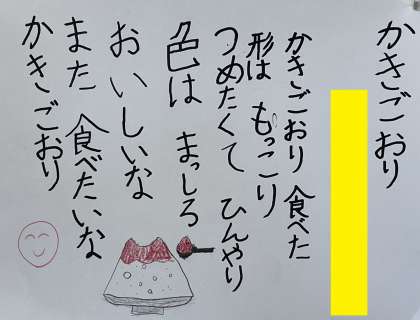 かきごおり
かきごおり 食べた
形は もっこり
つめたくて ひんやり
色は まっしろ
おいしいな
また 食べたいな
かきごおり